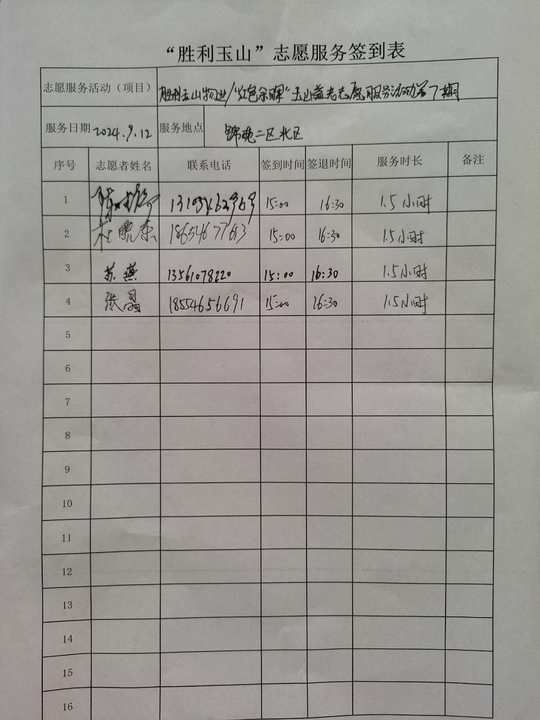 “胜利玉山”志愿服务签到表
志愿服务活动（项目） 胜利玉山物业/“红色 ”玉山益先志愿服务活动第7期
服务日期 2024.9.12 服务地点 锦苑二区北区
序号 志愿者姓名 联系电话 签到时间 签退时间 服务时长 备注
1 15:00 16:30 1.5小时
2 杜晓东 15:00 16:30 1.5小时
3 苏燕 13561078220 15:00 16:30 1.5小时
4 张晶 18554656691 15:00 16:30 1.5小时
5
6
7
8
9
10
11
12
13
14
15
16